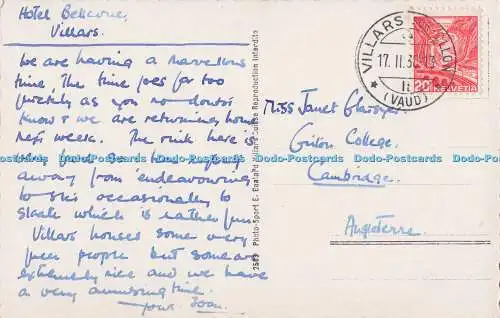 Hotel Bellevue,
Villars.
We are having a marvellous
time, The time goes far too
quickly as you no doubt
know & we are returning home
next week. The rink here is
very
away from endeavouring
to ski occasionally to
skate which is rather fun
Villars houses some very
queer people but some are
extremely nice and we have
a very amusing time.
yours Joan.
2589 Photo-Sport E. Reproduction interdite
VILLARS
17. II. 36
(VAUD)
20 HELVETIA
Miss Janet
Girton College.
Cambridge.
Angleterre.
Dodo-Postcards Dodo-Postcards Dodo-Postcards Dodo-Postcards